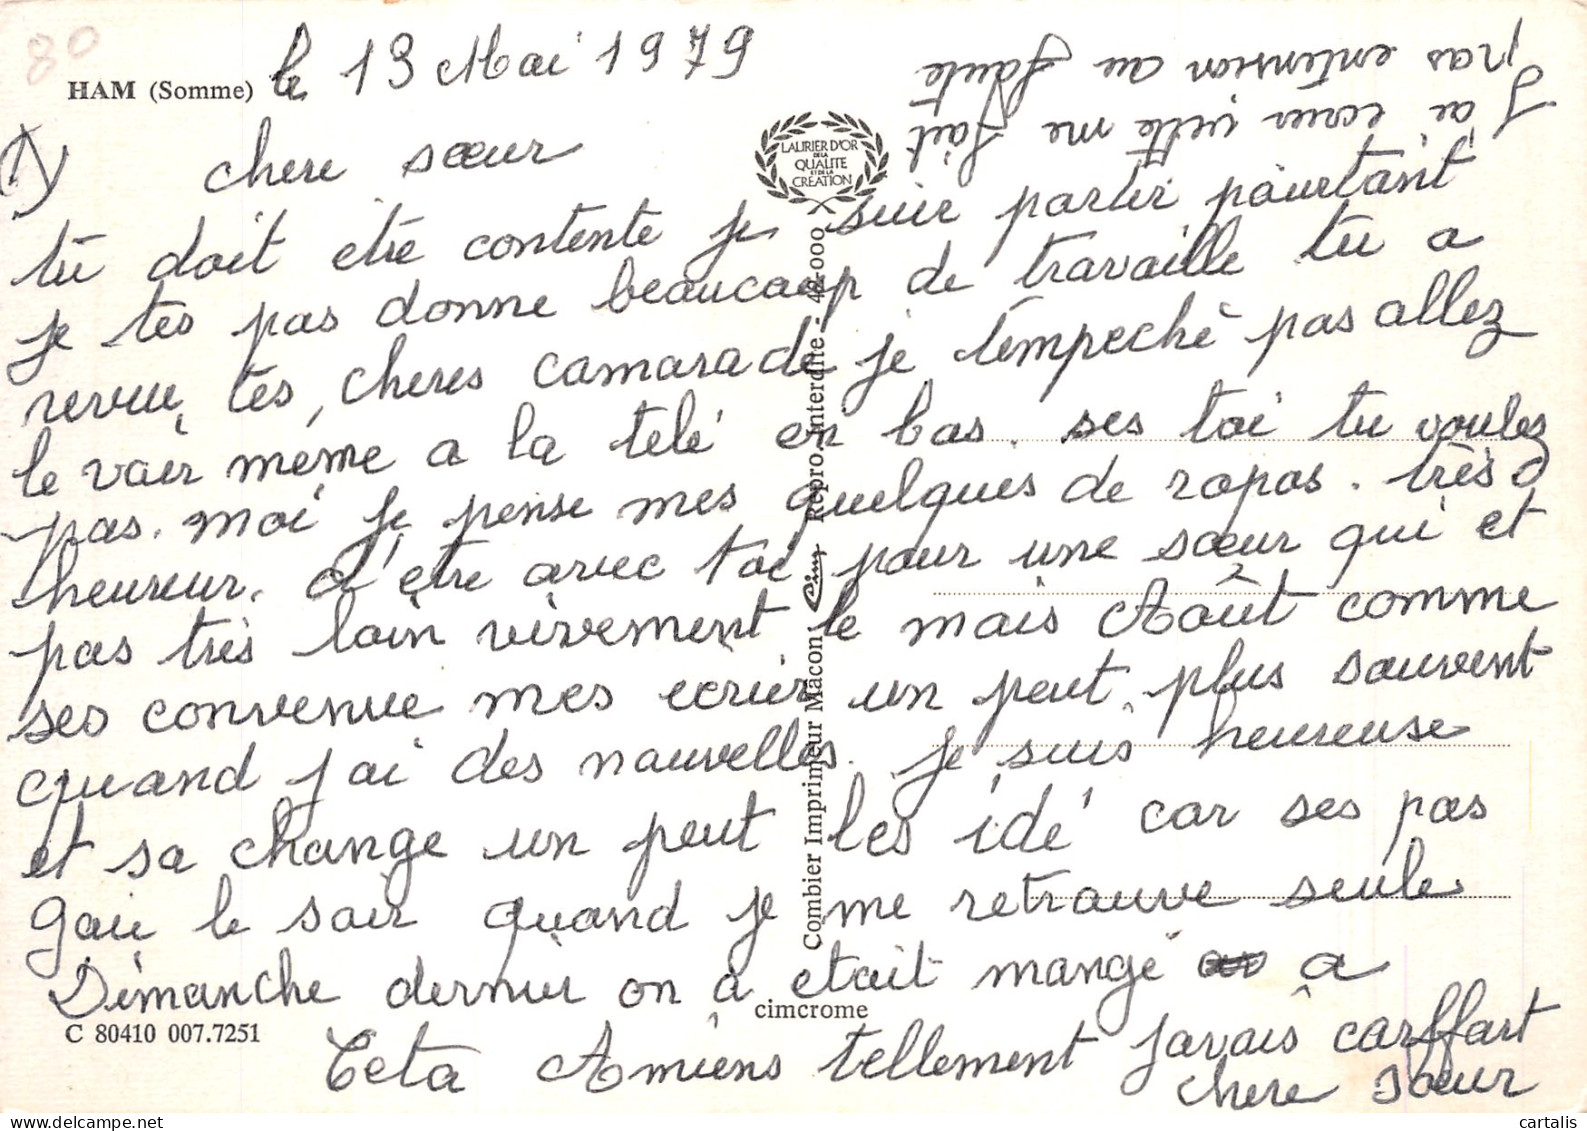 80
HAM (Somme) le 13 Mai 1979
1)
chere sœur
tu doit etre contente je suir partir pourtant
je tes pas donne beaucoup de travaille tu a
revue tes, cheres camarade je t'empeche pas allez
le voir même a la télé en bas. ses toi tu voulez
pas. moi je pense mes quelques de ropas. très
heureur. d'être avec toi pour une sœur qui et
pas très loin vivement le mais Août comme
ses convenue mes ecrier un peut plus souvent
quand j'ai des nouvelles. je suis heureuse
et sa change un peut les idé car ses pas
gaie le soir quand je me retrouve seule
Dimanche dernier on a etait mangé a
Ceta Amiens tellement javais carffart
chere sœur
J'ai ecrier vitte me fait
pas entension au faute
LAURIER D'OR
DE LA
QUALITE
ET DE LA
CREATION
Combier Imprimeur Mâcon Cim Repro. Interdite - 42-000
cimcrome
C 80410 007.7251
cartalis